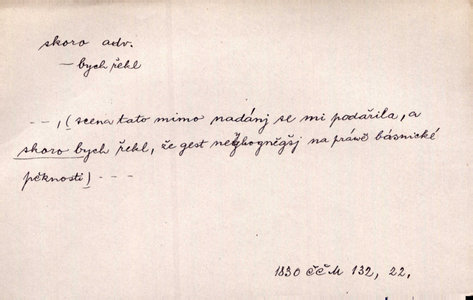 skoro adv.
— bych řekl
– – –, (scena tato mimo nadánj se mi podařila, a
skoro bych řekl, že gest neyhogněgšj na prawě básnické
pěknosti) – – –
1830 ČČM 132, 22.